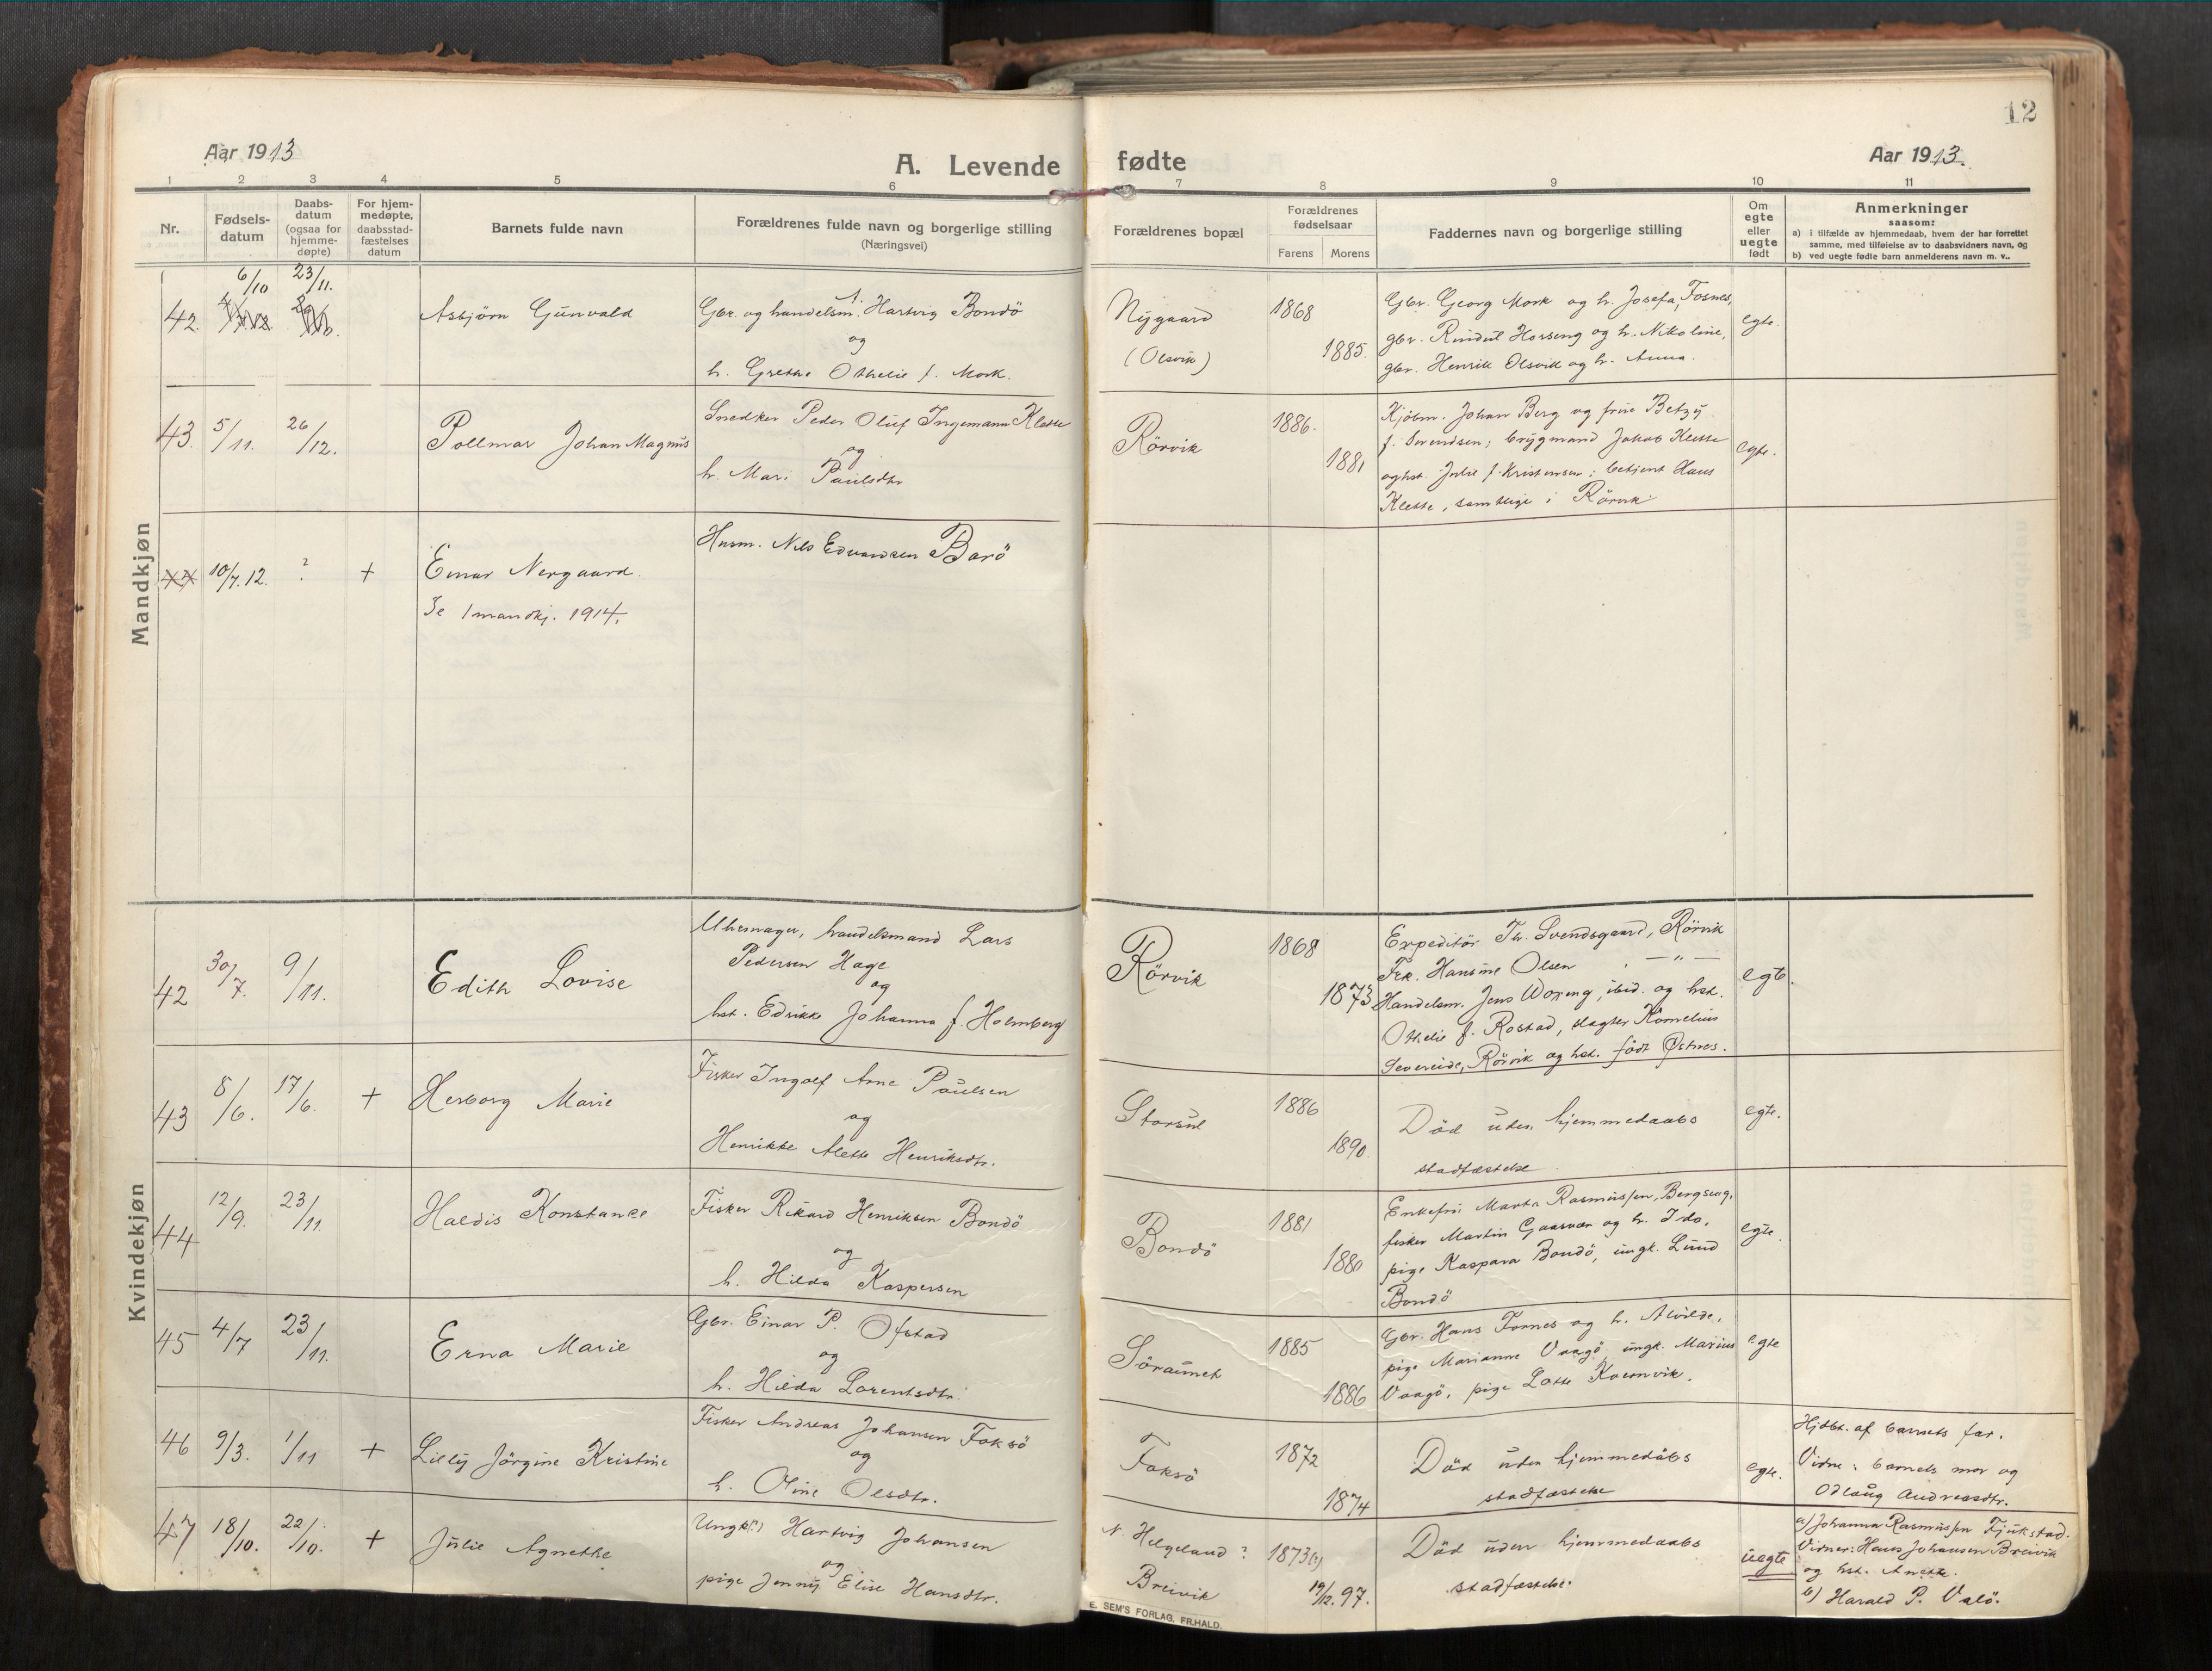 12
Aar 1913
A. Levende fødte
Aar 1913.
1 2 3 4 5 6 7 8 9 10 11
Nr.
Fødsels-
datum
Daabs-
datum
(ogsaa for
hjemme-
døpte)
For hjem-
medøpte,
daabsstad-
fæstelses
datum
Barnets fulde navn
Forældrenes fulde navn og borgerlige stilling
(Næringsvei)
Forældrenes bopæl
Forældrenes
fødselsaar
Farens Morens
Faddernes navn og borgerlige stilling
Om
egte
eller
uegte
født
Anmerkninger
saasom:
a) i tilfælde av hjemmedaab, hvem der har forrettet
samme, med tilføielse av to daabsvidners navn, og
b) ved uegte fødte barn anmelderens navn m. v..
Mandkjøn
42. 6/10 23/11.
Asbjörn Gunvald
Gbr. og handelsm. Hartvig Bondö
og
h. Grethe Othelie f. Mork.
Nygaard
(Olsvik)
1868
1885.
Gbr. Georg Mork og h. Josefa, Fosnes,
gbr. Rindul Horseng og h. Nikoline,
gbr. Henrik Olsvik og h. Anna.
egte.
43. 5/11. 26/12.
Pollmar Johan Magnus
Snedker Peder Oluf Ingemann Klette
og
h. Mari Paulsdtr
Rörvik
1886.
1881
Kjöbm. Johan Berg og frue Betzy
f. Svendsen; brygmand Jakob Klette
og hst. Julie f. Kristensen; betjent Hans
Klette, samtlige i Rörvik
egte.
44 10/7.12. ? +
Einar Nergaard.
Se 1 mandkj. 1914.
Husm. Nils Edvardsen Barö
Kvindekjøn
42 30/7. 9/11.
Edith Lovise
Uhrmager, handelsmand Lars
Pedersen Hage
og
hst. Edrikke Johanna f. Holmberg
Rörvik
1868
1873
Expeditör Th. Svendsgaard, Rörvik
Frk. Hansine Olsen — " —
Handelsm. Jens Woxeng, ibid. og hst.
Othelie f. Rostad, slagter Kornelius
Severeide, Rörvik og hst. födt Østnes.
egte.
43 8/6. 17/6. +
Herborg Marie
Fisker Ingolf Arne Paulsen
og
Henrikke Alette Henriksdtr.
Storsul
1886
1890.
Död uden hjemmedaabs
stadfæstelse
egte.
44 12/9. 23/11
Haldis Konstance
Fisker Rikard Henriksen Bondö
og
h. Hilda Kaspersen
Bondö
1881
1880
Enkefru Marta Rasmussen, Bergseng,
fisker Martin Gaasvær og h. Ida,
pige Kaspara Bondö, ungk. Lund
Bondö
egte.
45 4/7 23/11.
Erna Marie
Gbr. Einar P. Ofstad
og
h. Hilda Lorentsdtr.
Söraunet
1885
1886
Gbr. Hans Fornes og h. Alvilde,
pige Marianne Vaagö, ungk. Marius
Vaagö, pige Lotte Kvernvik.
egte
46 9/3. 1/11 +
Lilly Jörgine Kristine
Fisker Andreas Johansen Foksö
og
h. Oline Olsdtr.
Foksö
1872
1874
Död uden hjemmedåbs
stadfæstelse
egte.
Hjdbt. af barnets far.
Vidne: barnets mor og
Odlaug Andreasdtr.
47 18/10. 22/10. +
Julie Agnethe
Ungk(?) Hartvig Johansen
og
pige Jenny Elise Hansdtr.
N. Helgeland ?
Breivik
1873(?)
19/12.97.
Död uden hjemmedaabs
stadfæstelse.
uegte
a) Johanna Rasmussen Fjukstad.
Vidner: Hans Johansen Breivik
og hst. Anette.
b) Harald P. Valö.
E. SEM'S FORLAG, FR.HALD.